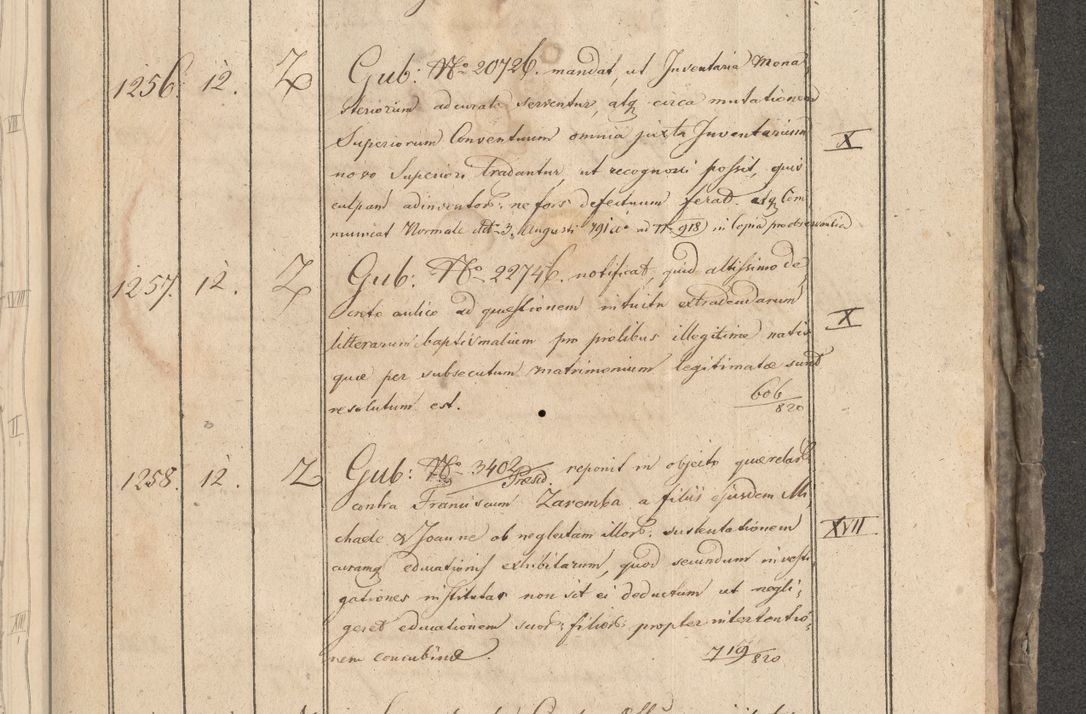 1256. 12. Z Gub: No 20726. mandat, ut Inventaria Mona
steriorum adcurate serventur, atq circa mutationem
Superiorum Conventuum omnia juxta Inventarium X
novo Superiori tradantur, ut recognosci possit, quis
culpam adinventor: nefors defectuum ferat. atq Com
municat Normale dtt 3. Augusti 791 ad No 918 in Copia pro observantia
1257. 12. Z Gub: No 22746. notificat, quid altissimo de
creto aulico ad quæstionem intuitu extradendarum X
litterarum baptismalium pro prolibus illegitime natis
quæ per subsecutum matrimonium legitimatæ sunt
resolutum est. 606/820
1258. 12. Z Gub: No 3402/Præsid. reponit in objecto querelar
contra Franciscum Zaremba a filiis ejusdem Mi
chaele & Joanne ob neglectam illor: sustentationem XVII
curamq educationis exhibitarum, quod secundum investi
gationes institutas non sit ei deductum ut negli
geret educationem suor: filior: propter intertentio
nem concubinæ. 719/820
VII
VIII
II
XIII